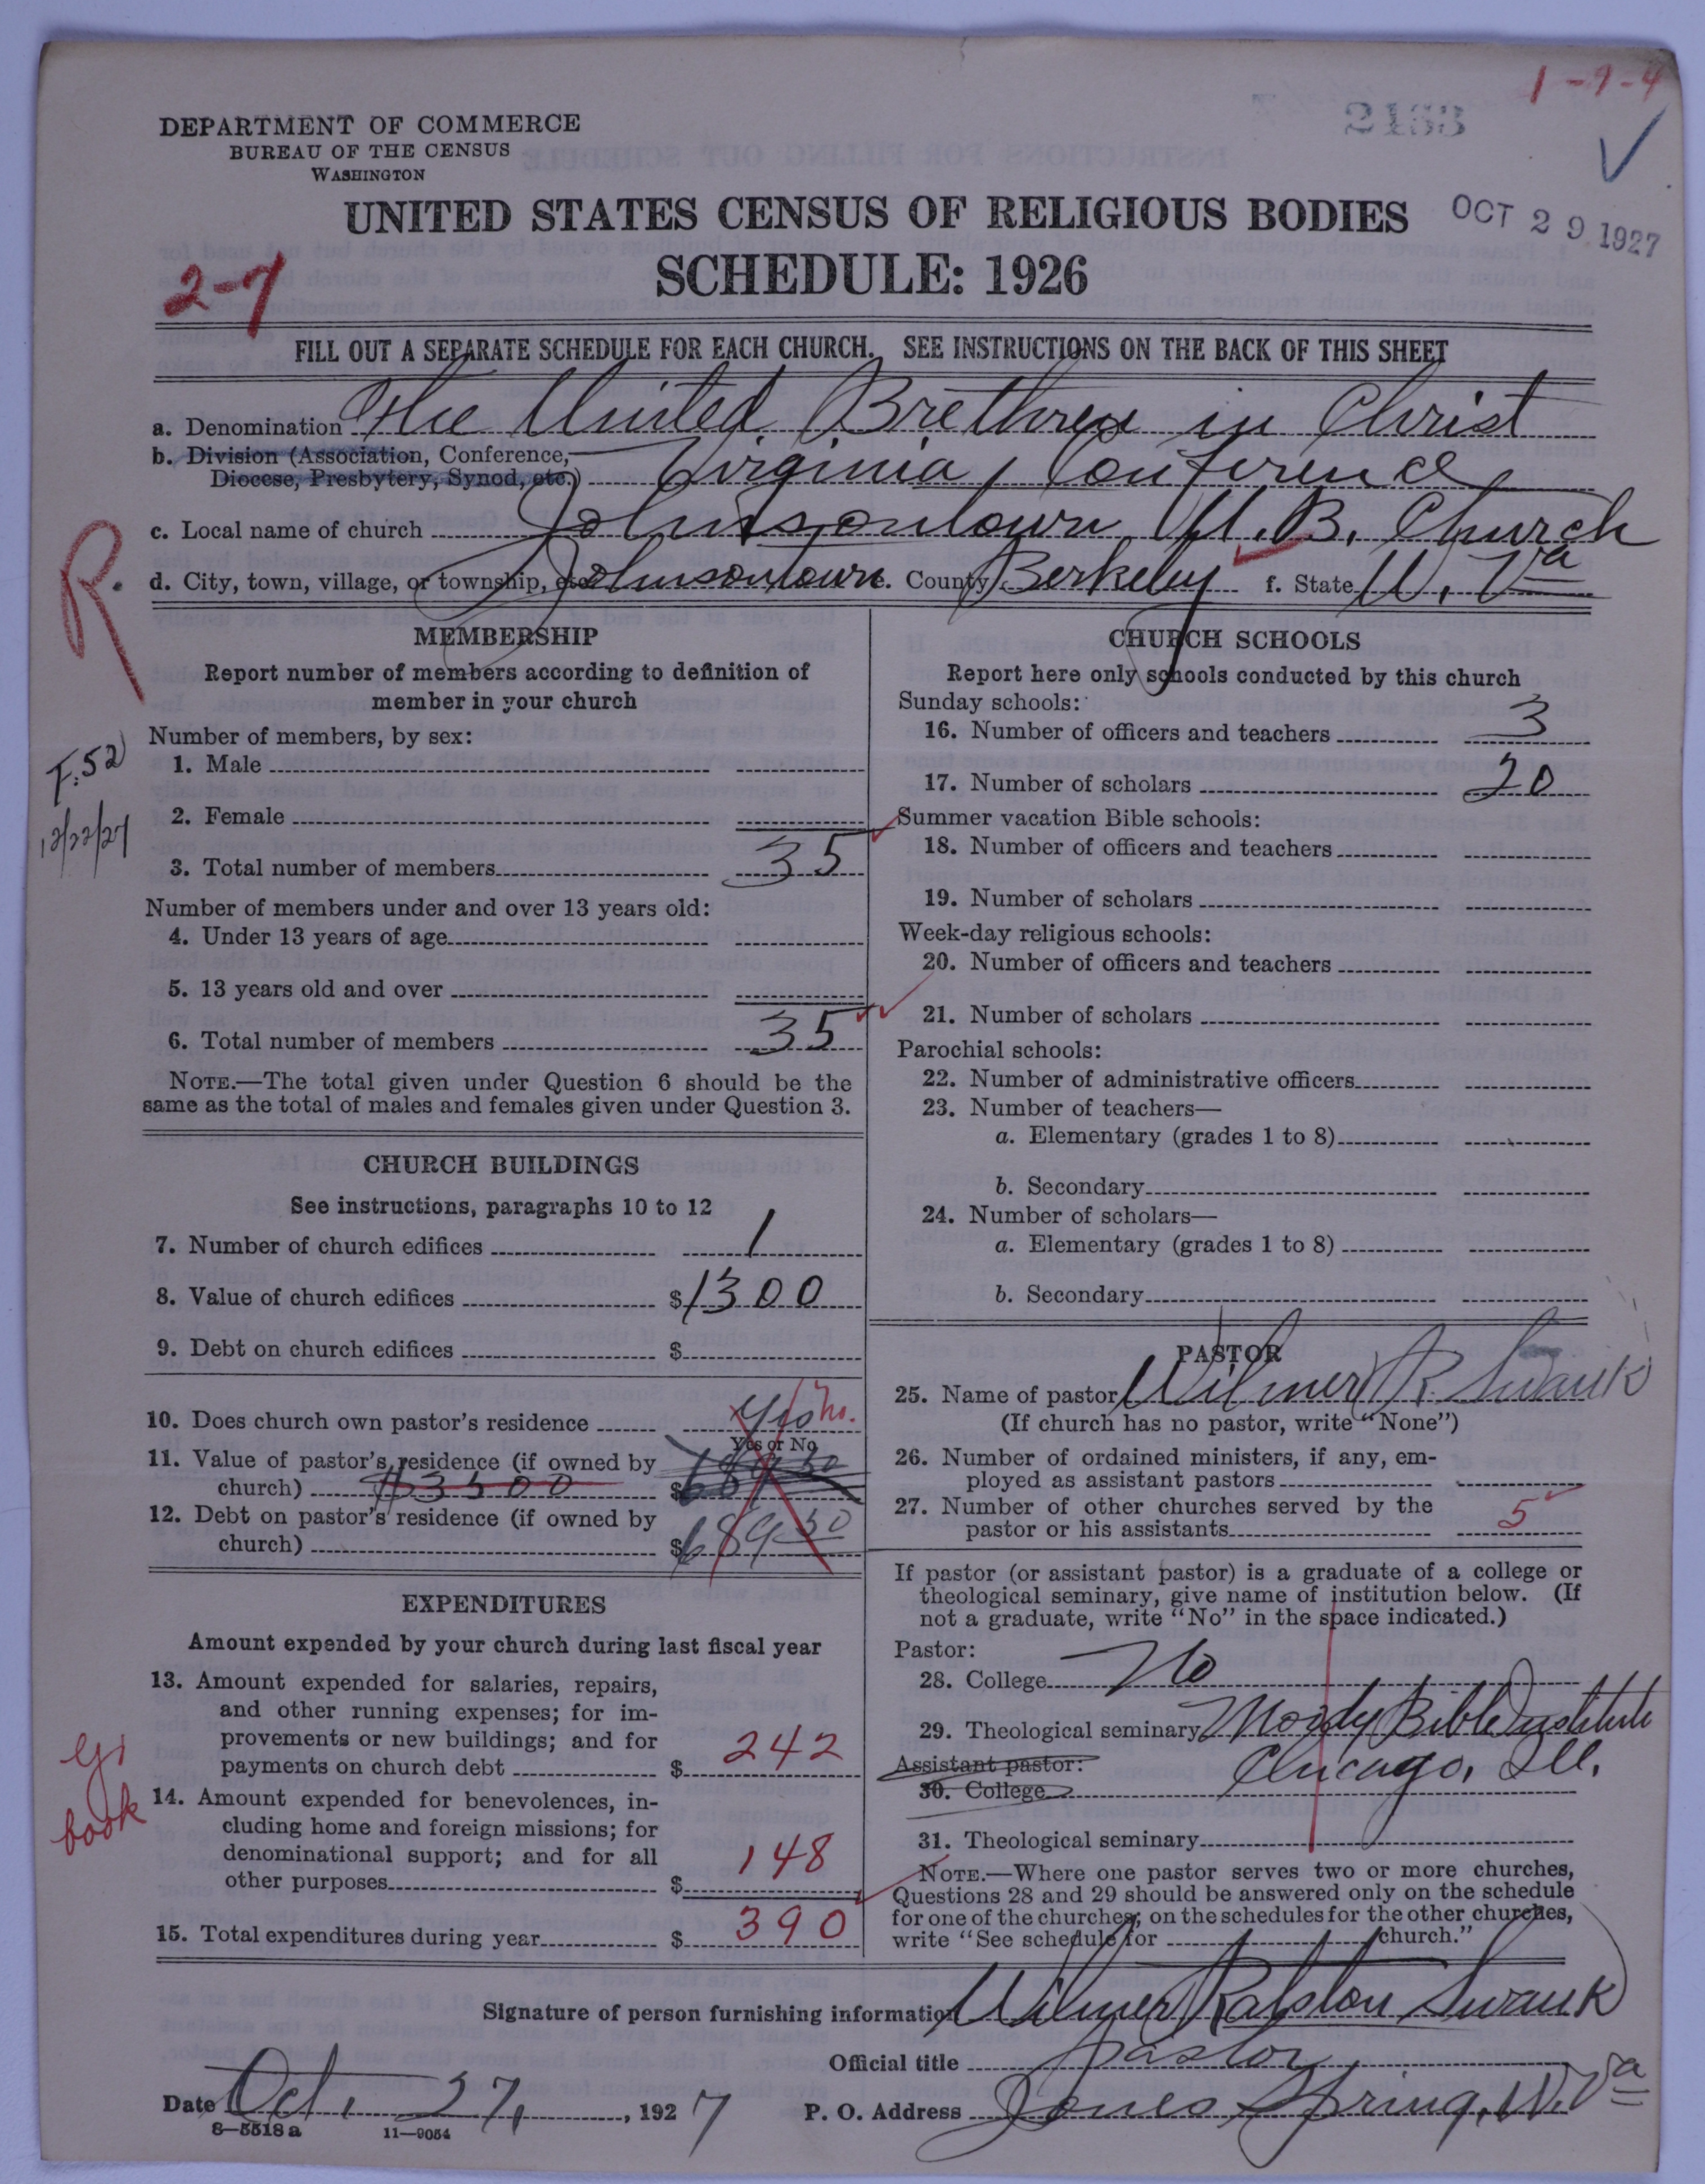 1-9-4
2183
DEPARTMENT OF COMMERCE
BUREAU OF THE CENSUS
WASHINGTON
UNITED STATES CENSUS OF RELIGIOUS BODIES
OCT 29 1927
SCHEDULE: 1926
2-7
FILL OUT A SEPARATE SCHEDULE FOR EACH CHURCH. SEE INSTRUCTIONS ON THE BACK OF THIS SHEET
a. Denomination The United Brethren in Christ
b. Division (Association, Conference, Diocese, Presbytery, Synod, etc.) Virginia Conference
c. Local name of church Johnsontown U.B. Church
d. City, town, village, or township, etc. Johnsontown e. County Berkeley f. State W. Va
R.
F.52
12/22/27
MEMBERSHIP
Report number of members according to definition of
member in your church
Number of members, by sex:
1. Male
2. Female
3. Total number of members 35
Number of members under and over 13 years old:
4. Under 13 years of age
5. 13 years old and over
6. Total number of members 35
NOTE.—The total given under Question 6 should be the
same as the total of males and females given under Question 3.
CHURCH BUILDINGS
See instructions, paragraphs 10 to 12
7. Number of church edifices 1
8. Value of church edifices $1300
9. Debt on church edifices $
10. Does church own pastor's residence Yes no.
Yes or No
11. Value of pastor's residence (if owned by
church) $3500 $ 689 50
12. Debt on pastor's residence (if owned by
church) $ 689 50
EXPENDITURES
Amount expended by your church during last fiscal year
13. Amount expended for salaries, repairs,
and other running expenses; for im-
provements or new buildings; and for
payments on church debt $ 242
14. Amount expended for benevolences, in-
cluding home and foreign missions; for
denominational support; and for all
other purposes $ 148
15. Total expenditures during year $ 390
book
CHURCH SCHOOLS
Report here only schools conducted by this church
Sunday schools:
16. Number of officers and teachers 3
17. Number of scholars 20
Summer vacation Bible schools:
18. Number of officers and teachers
19. Number of scholars
Week-day religious schools:
20. Number of officers and teachers
21. Number of scholars
Parochial schools:
22. Number of administrative officers
23. Number of teachers—
a. Elementary (grades 1 to 8)
b. Secondary
24. Number of scholars—
a. Elementary (grades 1 to 8)
b. Secondary
PASTOR
25. Name of pastor Wilmer R. Swank
(If church has no pastor, write "None")
26. Number of ordained ministers, if any, em-
ployed as assistant pastors
27. Number of other churches served by the
pastor or his assistants 5
If pastor (or assistant pastor) is a graduate of a college or
theological seminary, give name of institution below. (If
not a graduate, write "No" in the space indicated.)
Pastor:
28. College No
29. Theological seminary Moody Bible Institute
Assistant pastor: Chicago, Ill.
30. College
31. Theological seminary
NOTE.—Where one pastor serves two or more churches,
Questions 28 and 29 should be answered only on the schedule
for one of the churches; on the schedules for the other churches,
write "See schedule for church."
Signature of person furnishing information Wilmer Ralston Swank
Official title Pastor
Date Oct. 27, 1927 P. O. Address Jones Spring, W. Va
8—5518a 11—9054